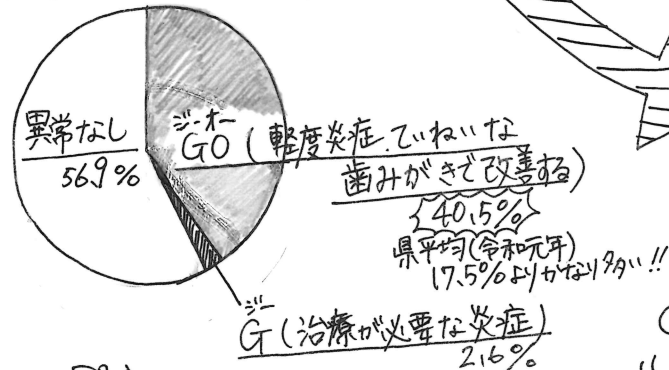 異常なし
56.9%
ジーオー
GO(軽度炎症.ていねいな
歯みがきで改善する)
40.5%
県平均(令和元年)
17.5%よりかなり多い!!
ジー
G(治療が必要な炎症)
2.6%